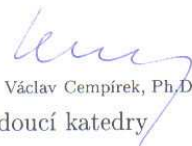 Václav Cempírek, Ph.D
doucí katedry